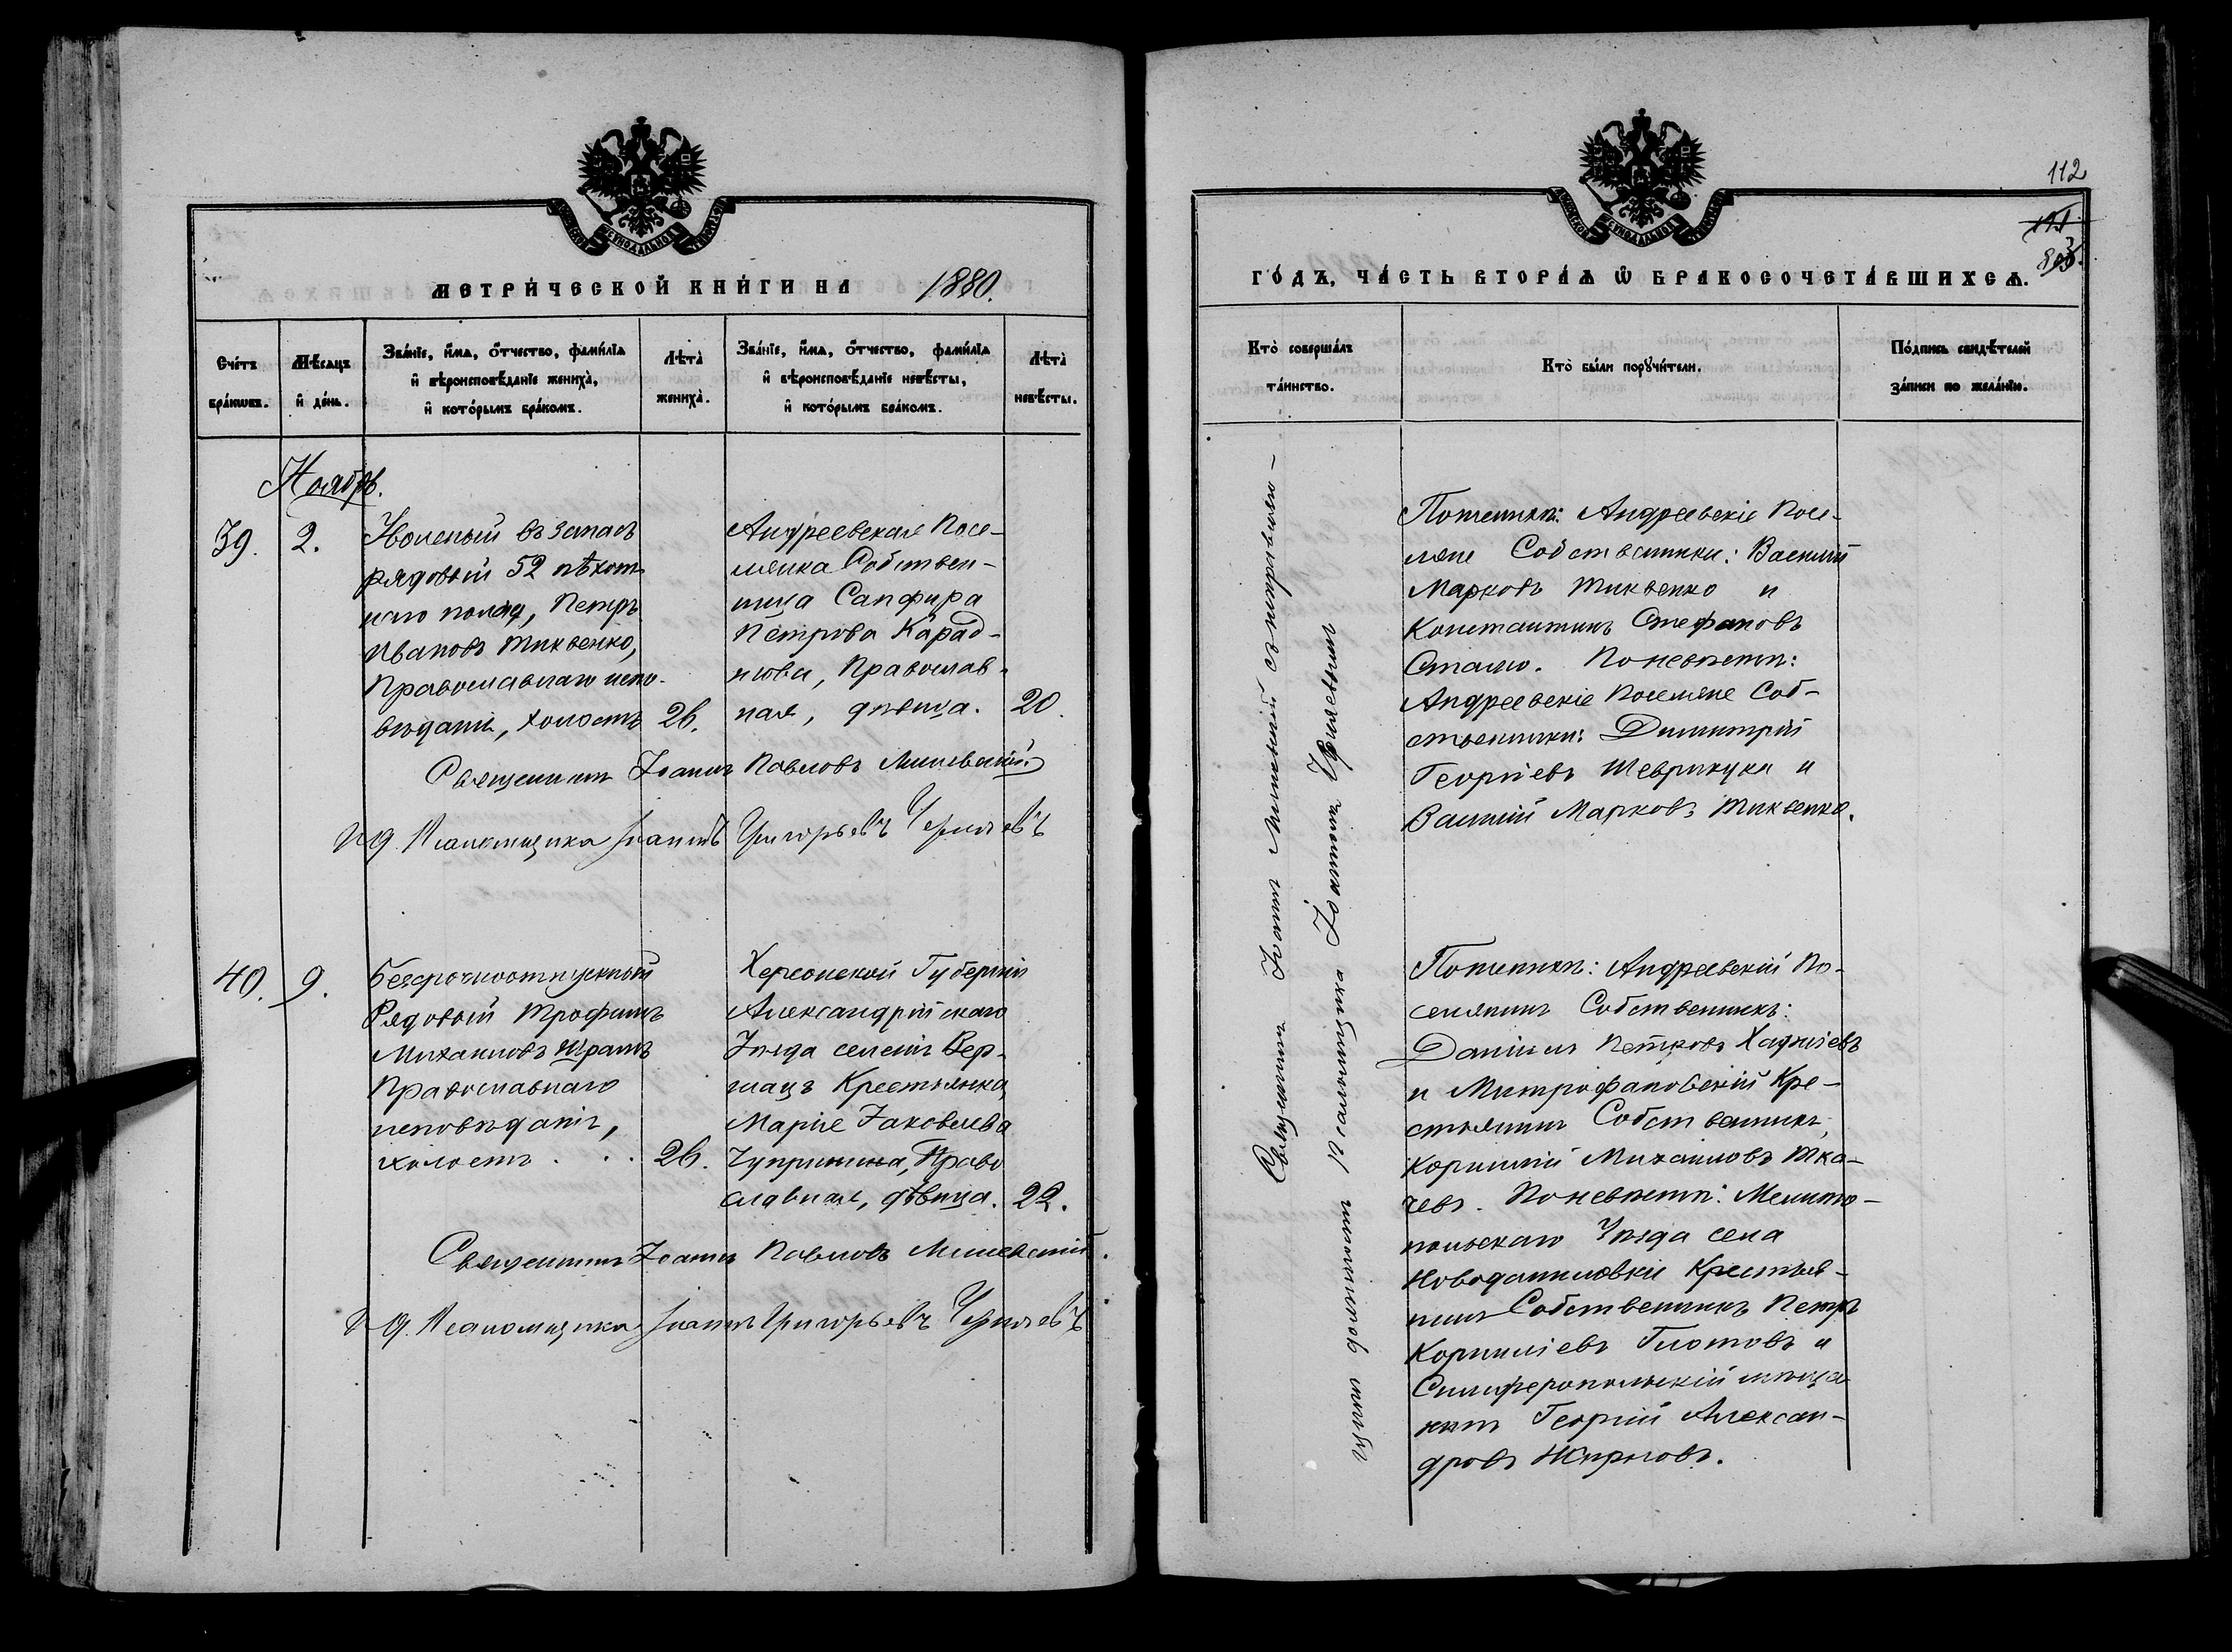 МЕТРИЧЕСКОЙ КНИГИ НА 1880.
Счетъ браковъ.
Мѣсяцъ и день.
Званіе, имя, отчество, фамилія и вѣроисповѣданіе жениха, и которымъ бракомъ.
Лѣта жениха.
Званіе, имя, отчество, фамилія и вѣроисповѣданіе невѣсты, и которымъ бракомъ.
Лѣта невѣсты.
Ноябрь.
39. 2.
Уволеный въ запасъ
рядовый 52 пѣхот
наго полка, Петръ
Ивановъ Тиквенко,
Православнаго испо-
вѣданія, холостъ 26.
Андреевская Посе-
лянка Собствен-
ница Сапфира
Петрова Карад-
жова, Православ-
ная, дѣвица. 20.
Священникъ Іоаннъ Павловъ
И д. Псаломщика Іоаннъ Григорьевъ
40. 9.
Безсрочноотпускный
Рядовый Трофимъ
Михаиловъ
Православнаго
исповѣданія,
холостъ . . . 26.
Херсонской Губерніи
Александрійскаго
Уѣзда селенія Вер-
шацъ Крестьянка,
Марія Іаковлева
Чуприника, Право
славная, дѣвица. 22.
Священникъ Іоаннъ Павловъ
И д. Псаломщика Іоаннъ Григорьевъ
112
ГОДЪ, ЧАСТЬ ВТОРАЯ Ѡ БРАКОСОЧЕТАВШИХСЯ.
Кто совершалъ таинство.
Кто были поручители.
Подпись свидѣтелей записи по желанію.
Священникъ Іоаннъ съ исправляю-
щимъ должность Псаломщика Іоанномъ
По женихѣ: Андреевскіе Посе-
ляне Собственники: Василій
Марковъ Тиквенко и
Константинъ Стефановъ
По невѣстѣ:
Андреевскіе Поселяне Соб-
ственники: Димитрій
Георгіевъ Шеврикука и
Василій Марковъ Тиквенко.
По женихѣ: Андреевскій По-
селянинъ Собственникъ:
Даніилъ Петковъ Хаджіевъ
и Митрофановскій Кре-
стьянинъ Собственникъ,
Корнилій Михаиловъ Тка-
чевъ. По невѣстѣ: Мелито-
польскаго Уѣзда села
Новоданиловки Крестья-
нинъ Собственникъ Петръ
Корниліевъ Глотовъ и
Симферопольскій мѣща
нинъ Георгій Алексан-
дровъ Жирновъ.